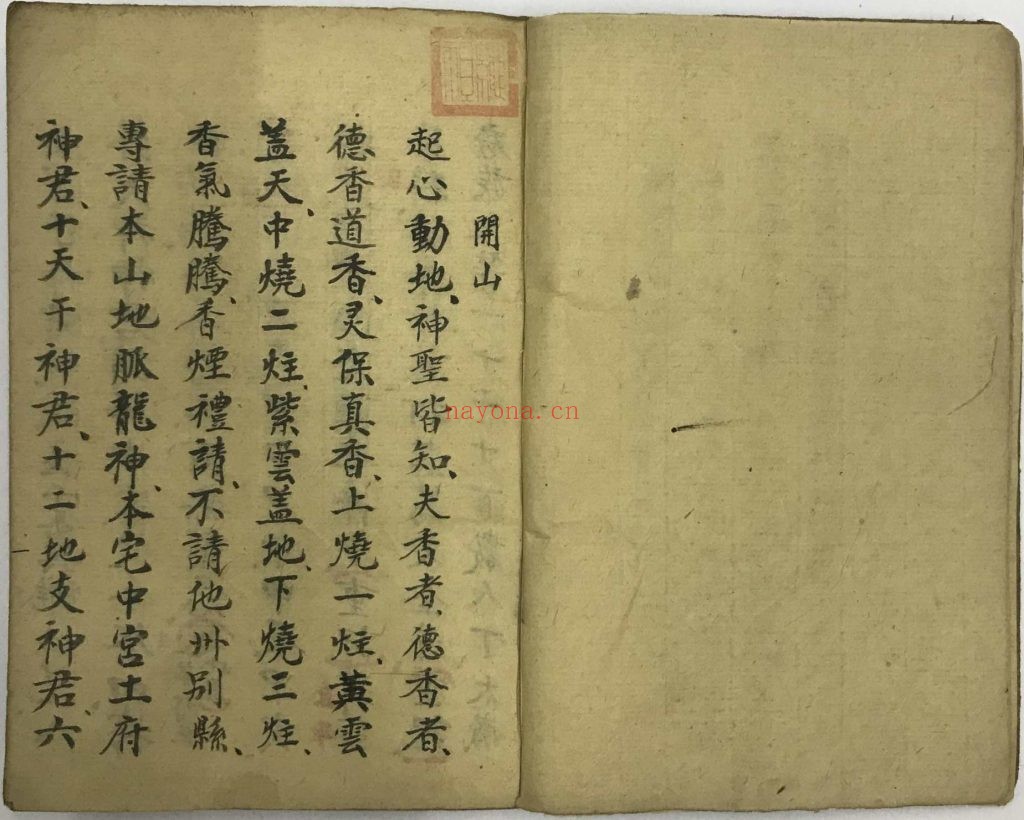 開山
起心動地、神聖皆知、夫香者、德香者、
德香道香、灵保真香、上燒一炷、黃雲
盖天、中燒二炷、紫雲盖地、下燒三炷、
香氣騰騰、香煙禮請、不請他州別縣、
專請本山地脈龍神、本宅中宮土府
神君、十天干神君、十二地支神君、六
nayona.cn